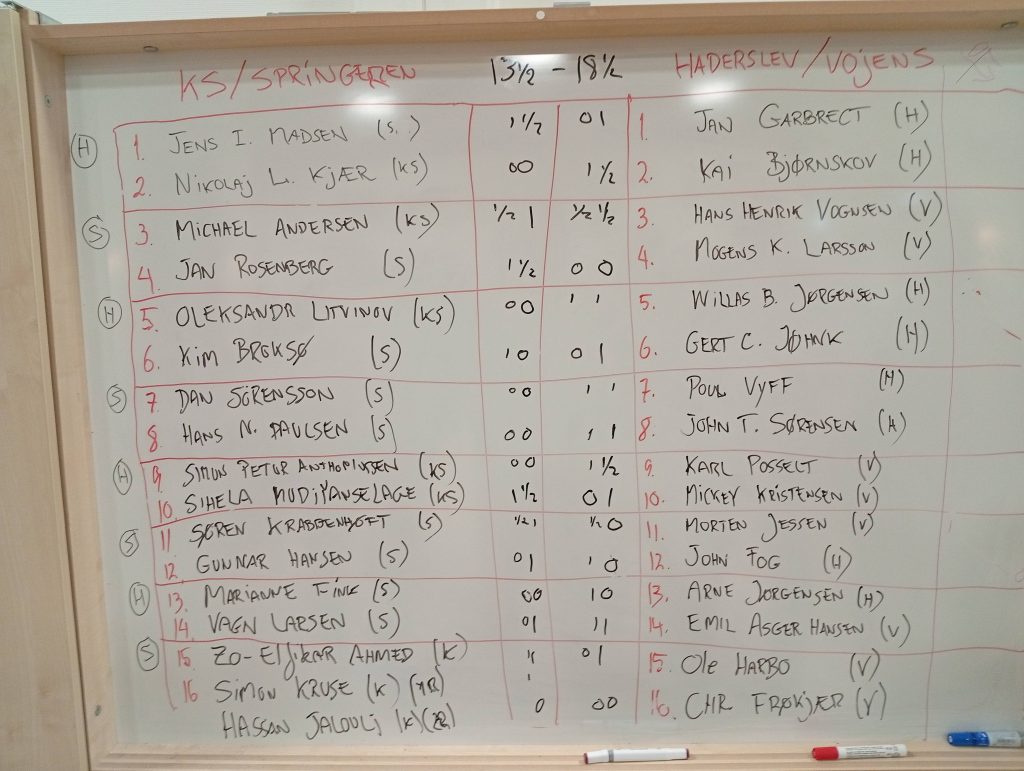 KS/SPRINGEREN 13½ - 18½ HADERSLEV/VOJENS
(H) 1. JENS I. MADSEN (S.) 1 ½ 0 1 1. JAN GARBRECT (H)
2. NIKOLAJ L. KJÆR (KS) 0 0 1 ½ 2. KAI BJØRNSKOV (H)
(S) 3. MICHAEL ANDERSEN (KS) ½ 1 ½ ½ 3. HANS HENRIK VOGNSEN (V)
4. JAN ROSENBERG (S) 1 ½ 0 0 4. MOGENS K. LARSSON (V)
(H) 5. OLEKSANDR LITVINOV (KS) 0 0 1 1 5. WILLAS B. JØRGENSEN (H)
6. KIM BROKSØ (S) 1 0 0 1 6. GERT C. JØHNK (H)
(S) 7 DAN SØRENSSON (S) 0 0 1 1 7. POUL VYFF (H)
8 HANS N. PAULSEN (S) 0 0 1 1 8. JOHN T. SØRENSEN (H)
(H) 9 SIMON PETUR (KS) 0 0 1 ½ 9. KARL POSSELT (V)
10 SIHELA MUDIYANSELAGE (KS) 1 ½ 0 1 10. MICKEY KRISTENSEN (V)
(S) 11 SØREN KRABBENHØFT (S) ½ 1 ½ 0 11. MORTEN JESSEN (V)
12. GUNNAR HANSEN (S) 0 1 1 0 12. JOHN FOG (H)
(H) 13. MARIANNE FINK (S) 0 0 1 0 13. ARNE JORGENSEN (H)
14. VAGN LARSEN (S) 0 1 1 1 14. EMIL ASGER HANSEN (V)
(S) 15 AHMED (K) 0 1 15. OLE HARBO (V)
16 SIMON KRUSE (K)
HASSAN (K) 0 0 0 16. CHR FRØKJÆR (V)